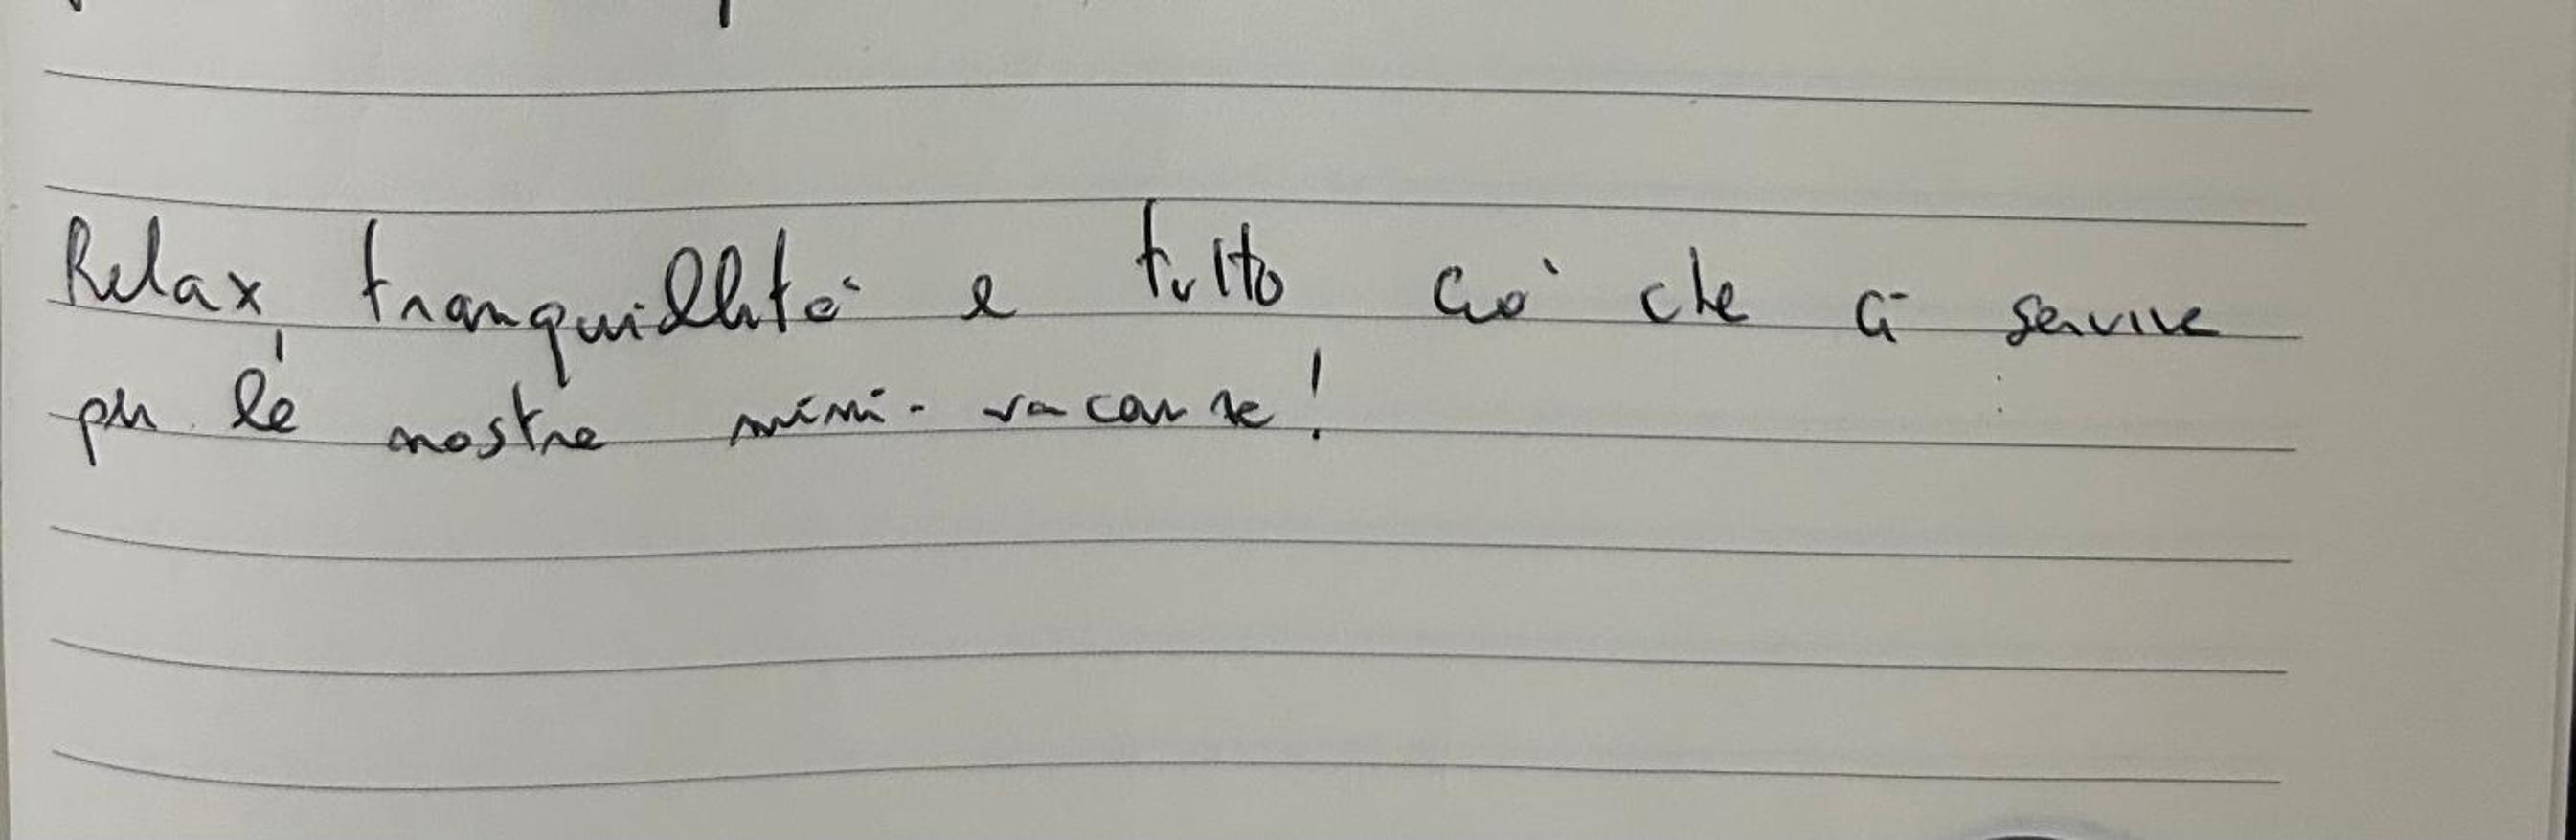 Relax, tranquillità e tutto ciò che ci serviva
per le nostre mini-vacanze!